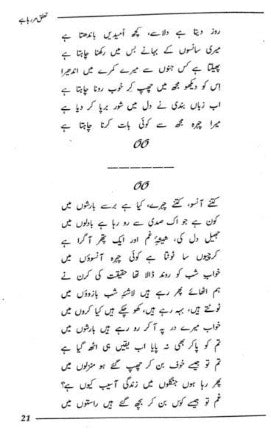 تعلق مر رہا ہے
روز دیتا ہے دلاسے، کچھ اُمیدیں باندھتا ہے
میری سانسوں کے بہانے بس میں رکھنا چاہتا ہے
پھیلتا ہے کس جنوں سے میرے کمرے میں اندھیرا
اس کو دیکھو مجھ میں چھپ کر خوب رونا چاہتا ہے
اب زباں بندی نے دل میں شور برپا کر دیا ہے
میرا چہرہ مجھ سے کوئی بات کرنا چاہتا ہے
کتنے آنسو، کتنے چہرے، کیا ہے برسے بارشوں میں
کون ہے جو اک صدی سے رو رہا ہے بادلوں میں
جھیل دل کی، شیشۂ غم اور ایک پتھر آ گرا ہے
کرچیوں سا ٹوٹتا ہے کوئی چہرہ آنسوؤں میں
خواب شب کو روند ڈالا تھا حقیقت کی کرن نے
ہم اٹھائے پھر رہے ہیں لاشۂ شب بازوؤں میں
ٹوٹتے ہیں، بہہ رہے ہیں، کھو چکے ہیں کیا کروں میں
خواب میرے در پہ آ کر رو رہے ہیں بارشوں میں
تم کو پا کر بھی نہ پایا اب یقیں ہی اٹھ گیا ہے
تم تو جیسے خوف بن کر چھپ گئے ہو منزلوں میں
پھر رہا ہوں جنگلوں میں زندگی آسیب کیوں ہے؟
غم تو جیسے لوں بن کر بچھ گئے ہیں راستوں میں
21